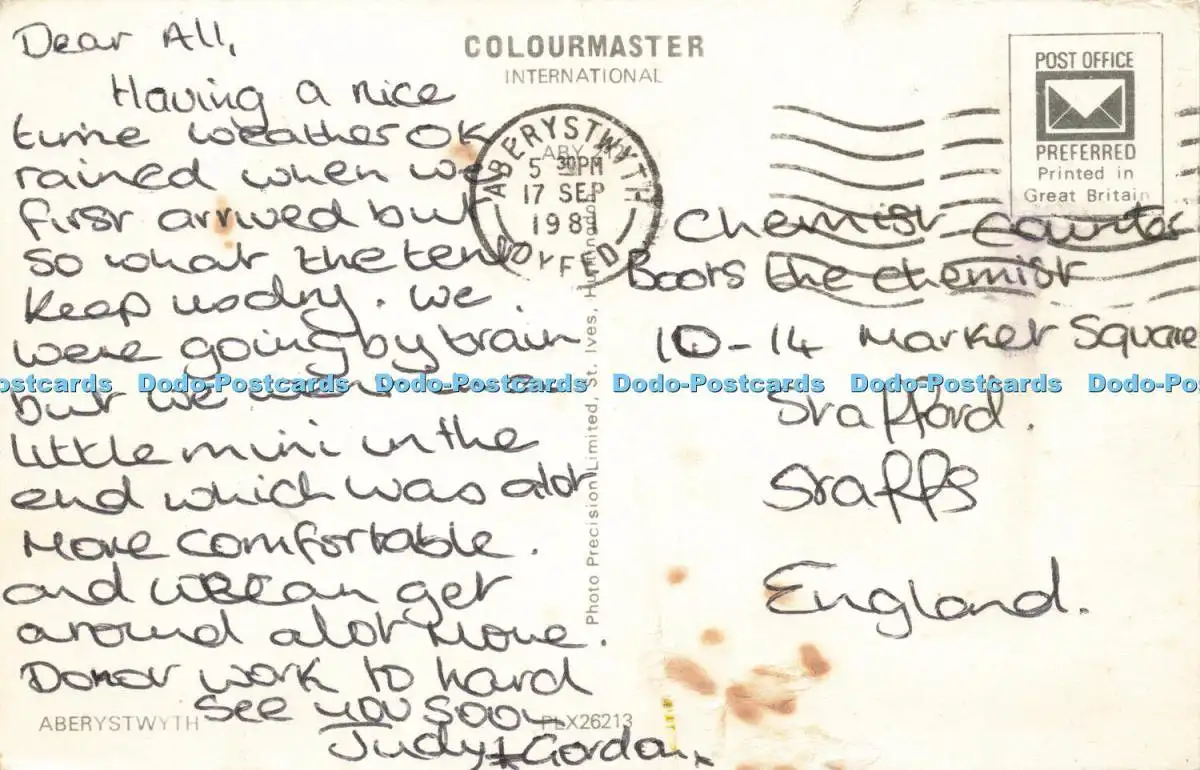 Dear All,
Having a nice
time weather OK
rained when we
first arrived but
so what the tent
keep us dry. we
were going by train
but we went in a
little mini in the
end which was alot
more comfortable.
and we can get
around alot more.
Donot work to hard
See you soon
Judy & Gordon x
ABERYSTWYTH
PLX26213
COLOURMASTER
INTERNATIONAL
Photo Precision Limited, St. Ives,
ABERYSTWYTH
5 30PM
17 SEP
198
DYFED
POST OFFICE
PREFERRED
Printed in
Great Britain
Chemist Counter
Boots the chemist
10-14 Market Square
Stafford.
Staffs
England.
Dodo-Postcards Dodo-Postcards Dodo-Postcards Dodo-Postcards